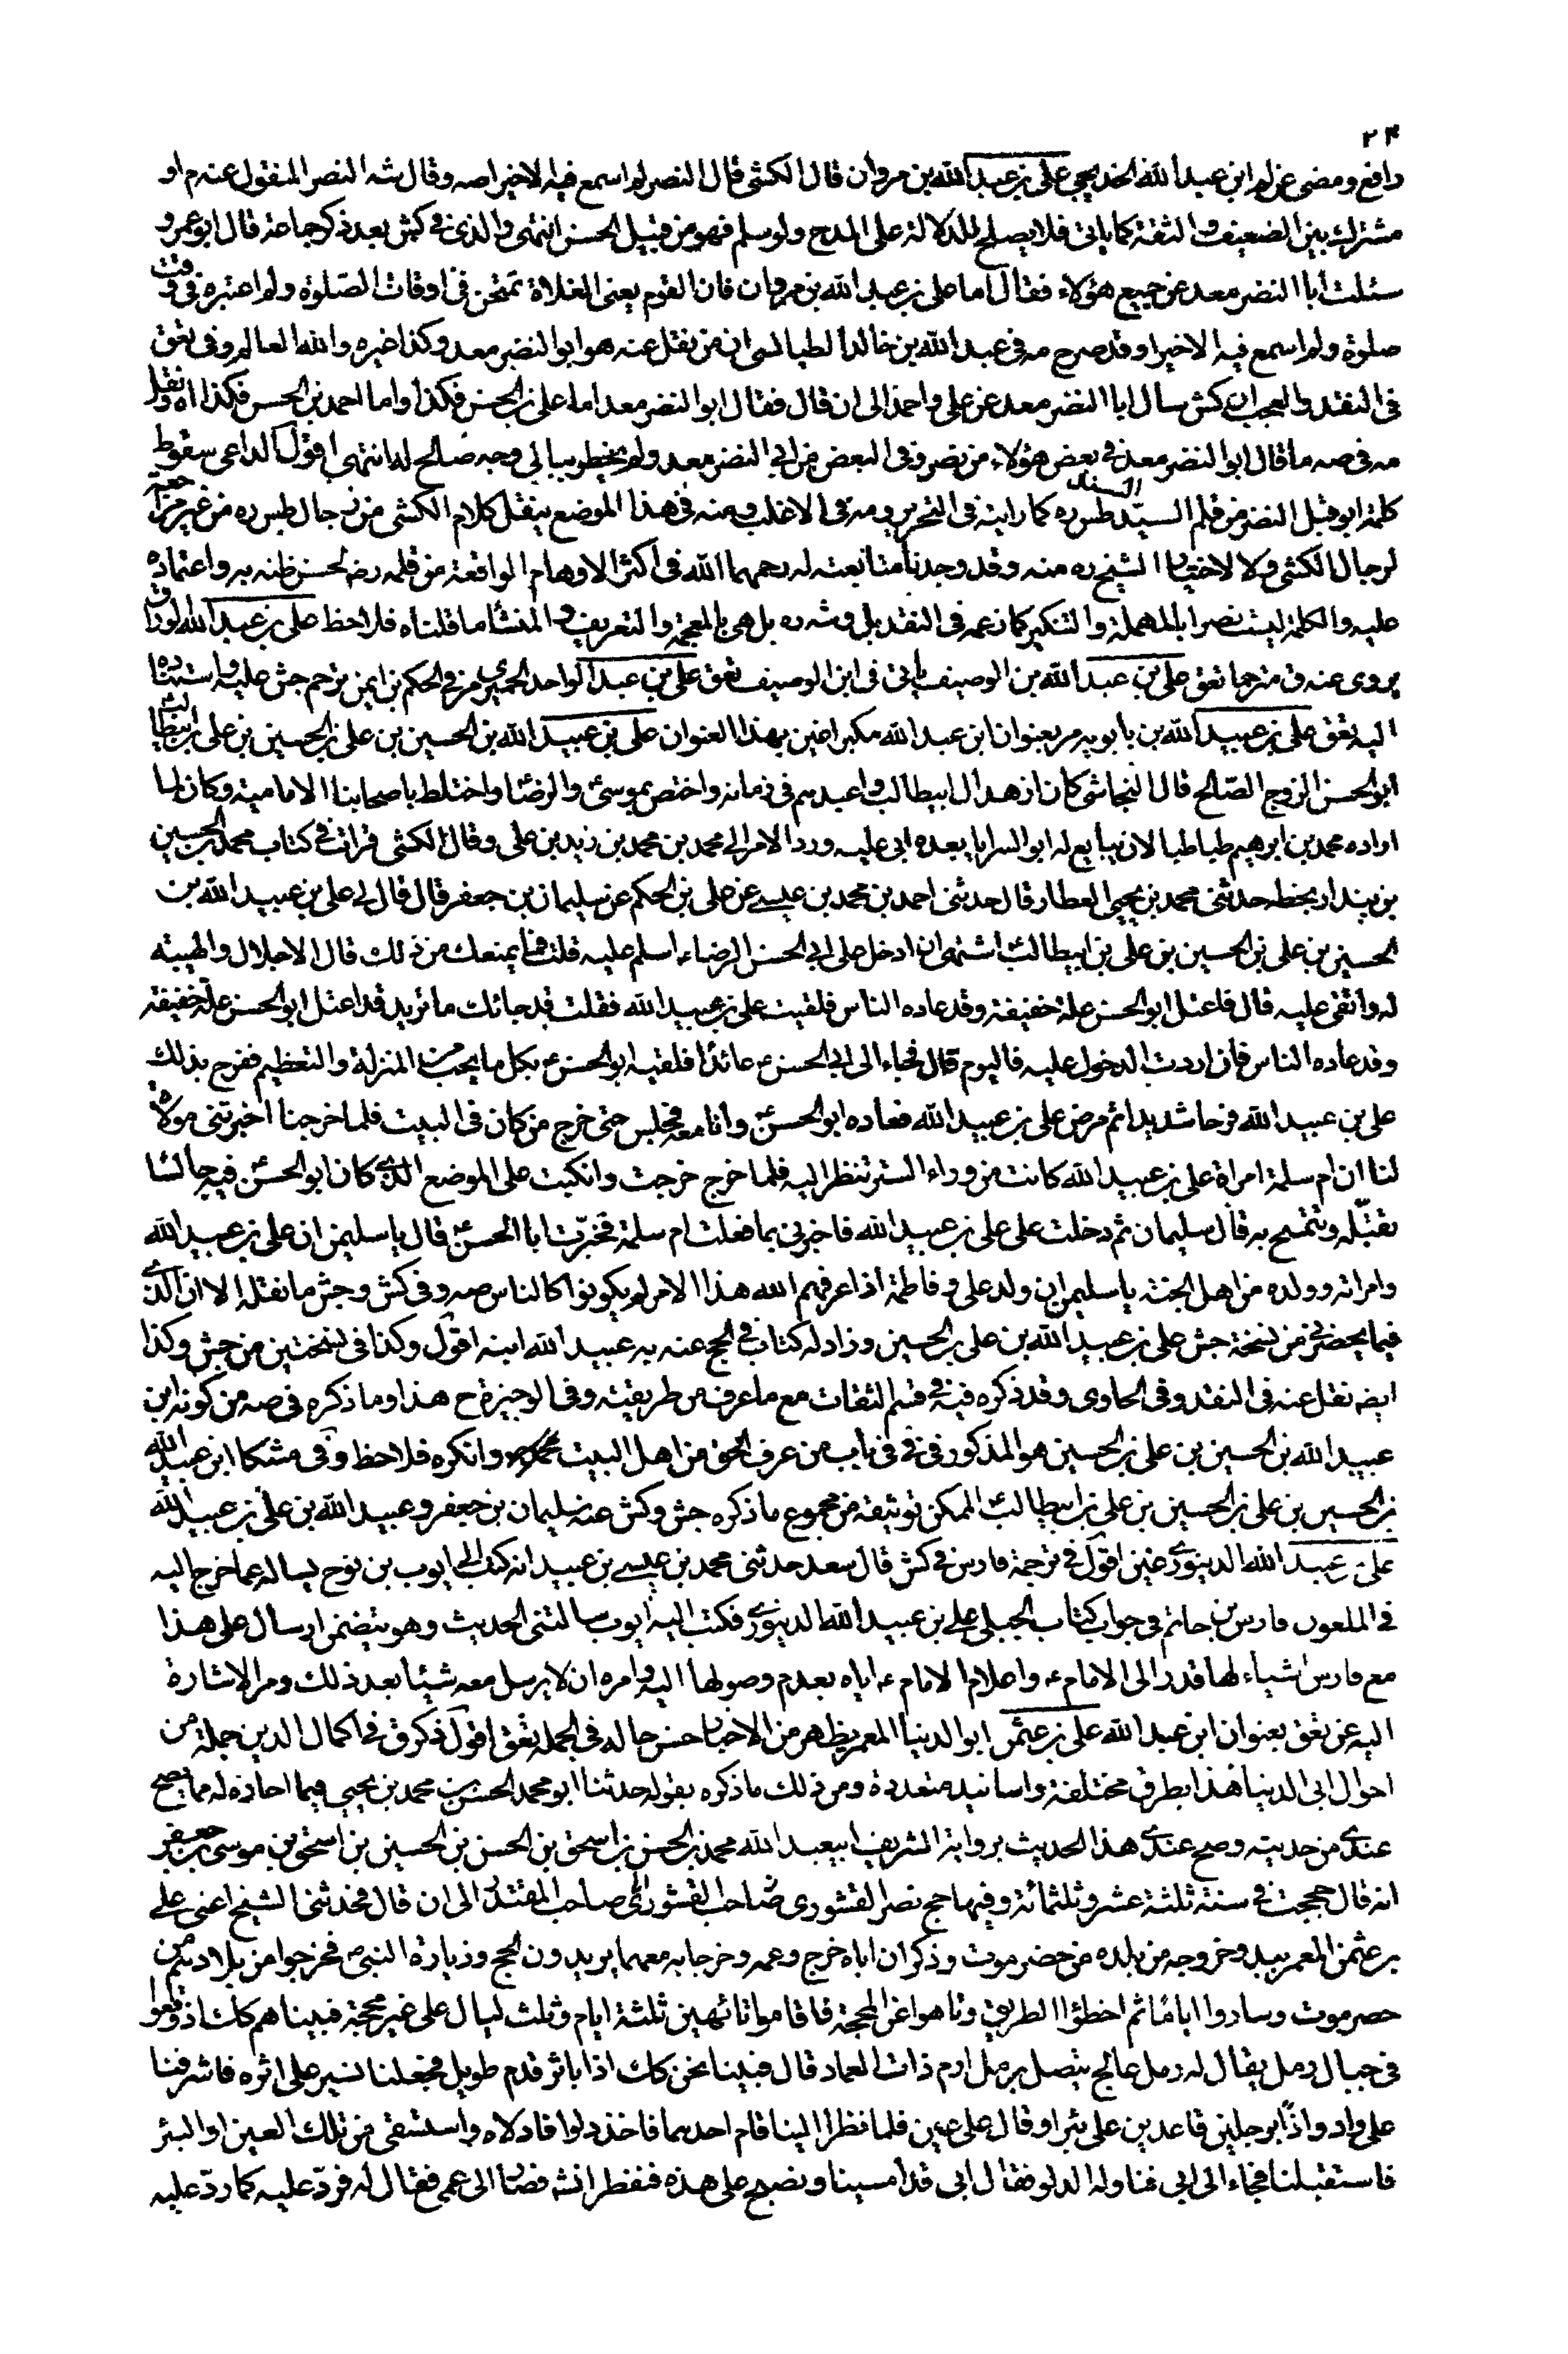 ٢٤
دافع ومضى عن لم ابن عبد الله الخديجي علي بن عبد الله بن مروان قال الكشي قال النصر لم اسمع فيه الا خيرا صه وقال شه النصر المنقول عنه م او
مشترك بين الضعيف والثقة كما ياتى فلا يصلح للدلالة على المدح ولو سلم فهو من قبيل الحسن انتهى والذى فى كش بعد ذكر جماعة قال ابو عمرو
سئلت أبا النضر معد عن جميع هؤلاء فقال اما على بن عبد الله بن مروان فان القوم يعنى الغلاة تمتحن فى اوقات الصّلوة ولم اعتبره فى وقت
صلوة ولم اسمع فيه الا خيرا وقد صرح مه فى عبد الله بن خالد الطيالسى ان من نقل عنه هو ابو النضر معد وكذا غيره والله العالم وفى تعق
فى النقد والعجب ان كش سال ابا النضر معد عن على واحمد الى ان قال فقال ابو النضر معد اما على بن الحسن فكذا واما احمد بن الحسن فكذا اه ونقل
مه فى صه ما قال ابو النضر معد فى بعض هؤلاء من نصر وفى البعض من ابى النضر معد ولم يخطر ببالى وجه صالح له انتهى اقول الداعى سقوط
كلمة ابو قبل النضر من قلم السيّد السند طس ره كما رايته فى التحرير ومه فى الاغلب ومنه فى هذا الموضع ينقل كلام الكشى من رجال طس ره من غير مراجعة
لرجال الكشى ولا لاختيار الشيخ ره منه وقد وجدنا متابعته له رحمهما الله فى اكثر الاوهام الواقعة من قلمه رضه لحسن ظنه به واعتماده
عليه والكلمة ليست نصرا بالمهملة والتنكير كما زعمه فى النقد بل وشه ره بل هى بالمعجمة والتعريف والمنشأ ما قلناه فلاحظ على بن عبد الله الوراق
يروى عنه ق مترحما تعق على بن عبد الله بن الوصيف ياتى فى ابن الوصيف تعق على بن عبد الواحد الحميرى مر فى الحكم بن ايمن ترحم جش عليه واستناده
اليه تعق على بن عبيد الله بن بابويه مر بعنوان ابن عبد الله مكبرا غين بهذا العنوان على بن عبيد الله بن الحسين بن على بن الحسين بن على بن ابيطالب
ابو الحسن الزوج الصّالح قال النجاشى كان ازهد ال ابيطالب واعبدهم فى زمانه واختص بموسى والرضا واختلط باصحابنا الامامية وكان لما
اراده محمد بن ابرهيم طباطبا لان يبايع له ابو السرايا بعده ابى عليه ورد الامر الى محمد بن محمد بن زيد بن على وقال الكشى قرات فى كتاب محمد بن الحسين
بن بندار بخطه حدثنى محمد بن يحيى العطار قال حدثنى احمد بن محمد بن عيسى عن على بن الحكم عن سليمان بن جعفر قال قال لى على بن عبيد الله بن
الحسين بن على بن الحسين بن على بن ابيطالب اشتهى ان ادخل على ابى الحسن الرضا ع اسلم عليه قلت فما يمنعك من ذلك قال الاجلال والهيبة
له واتقى عليه قال فاعتل ابو الحسن علة خفيفة وقد عاده الناس فلقيت على بن عبيد الله فقلت قد جائك ما تريد قد اعتل ابو الحسن علة خفيفة
وقد عاده الناس فان اردت الدخول عليه فاليوم قال فجاء الى ابى الحسن ع عائدا فلقيه ابو الحسن ع بكل ما يحب من المنزلة والتعظيم ففرح بذلك
على بن عبيد الله فرحا شديدا ثم مرض على بن عبيد الله فعاده ابو الحسن ع وانا معه فجلس حتى خرج من كان فى البيت فلما خرجنا اخبرتنى مولاة
لنا ان ام سلمة امراة على بن عبيد الله كانت من وراء الستر تنظر اليه فلما خرج خرجت وانكبت على الموضع الذى كان ابو الحسن فيه جالسا
تقبّله وتتمسح به قال سليمان ثم دخلت على على بن عبيد الله فاخبرنى بما فعلت ام سلمة فخبرت ابا الحسن ع قال يا سليمن ان على بن عبيد الله
وامراته وولده من اهل الجنة يا سليمن ان ولد على وفاطمة اذا عرفهم الله هذا الامر لم يكونوا كالناس صه وفى كش وجش ما نقله الا ان الذى
فيما يحضرنى من نسخة جش على بن عبيد الله بن على بن الحسين وزاد له كتاب فى الحج عنه به عبيد الله ابنه اقول وكذا فى نسختين من جش وكذا
ايضه نقل عنه فى النقد وفى الحاوى وقد ذكره فيه فى قسم الثقات مع ما عرف من طريقته وفى الوجيزة ح هذا وما ذكره فى صه من كونه ابن
عبيد الله بن الحسين بن على بن الحسين هو المذكور فى فى باب من عرف الحق من اهل البيت وانكره فلاحظ وفى مشكا ابن عبيد الله
بن الحسين بن على بن الحسين بن على بن ابيطالب الممكن توثيقه من مجموع ما ذكره جش وكش عنه سليمان بن جعفر وعبيد الله بن على بن عبيد الله
على بن عبيد الله الدينورى غين اقول فى ترجمة فارس فى كش قال سعد حدثنى محمد بن عيسى بن عبيد انه كتب الى ايوب بن نوح يساله عما خرج اليه
فى الملعون فارس بن حاتم فى جواب كتاب الجبلى على بن عبيد الله الدينورى فكتب اليه ايوب سالتنى الحديث وهو يتضمن ارسال على هذا
مع فارس اشياء لها قدر الى الامام ع واعلام الامام ع اياه بعدم وصولها اليه وامره ان لا يرسل معه شيئا بعد ذلك ومر الاشارة
اليه عن تعق بعنوان ابن عبد الله على بن عثمن ابو الدنيا المعمر يظهر من الاخبار حسن حاله فى الجملة تعق اقول ذكر ق فى اكمال الدين جملة من
احوال ابى الدنيا هذا بطرق مختلفة واسانيد متعددة ومن ذلك ما ذكره بقوله حدثنا ابو محمد الحسن بن محمد بن يحيى فيما اجازه له مما يصح
عندى من حديثه وصح عندى هذا الحديث برواية الشريف ابيعبد الله محمد بن الحسن بن اسحق بن الحسن بن الحسين بن اسحق بن موسى بن جعفر
انه قال حججت فى سنة ثلثة عشر وثلثمائة وفيها حج نصر القشورى صاحب المقتدر الى ان قال فحدثنى الشيخ اعنى على
بن عثمن المعمر ببدو خروجه من بلده من حضرموت وذكر ان اباه خرج وعمه وخرجا به معهما يريدون الحج وزيارة النبى ص فخرجوا من بلادهم من
حضرموت وساروا اياما ثم اخطؤا الطريق وتاهوا عن المحجة فاقاموا تائهين ثلثة ايام وثلث ليال على غير محجة فبينا هم كك اذ وقعوا
فى جبال رمل يقال له رمل عالج يتصل برمل ارم ذات العماد قال فبينا نحن كك اذا باثر قدم طويل فجعلنا نسير على اثره فاشرفنا
على واد واذا برجلين قاعدين على بئر او قال على عين فلما نظرا الينا قام احدهما فاخذ دلوا فادلاه واستسقى من تلك العين او البئر
فاستقبلنا فجاء الى ابى فناوله الدلو فقال ابى قد امسينا ونصبح على هذه فنفطر انشه فصار الى عمى فقال له فردّ عليه كما ردّ عليه